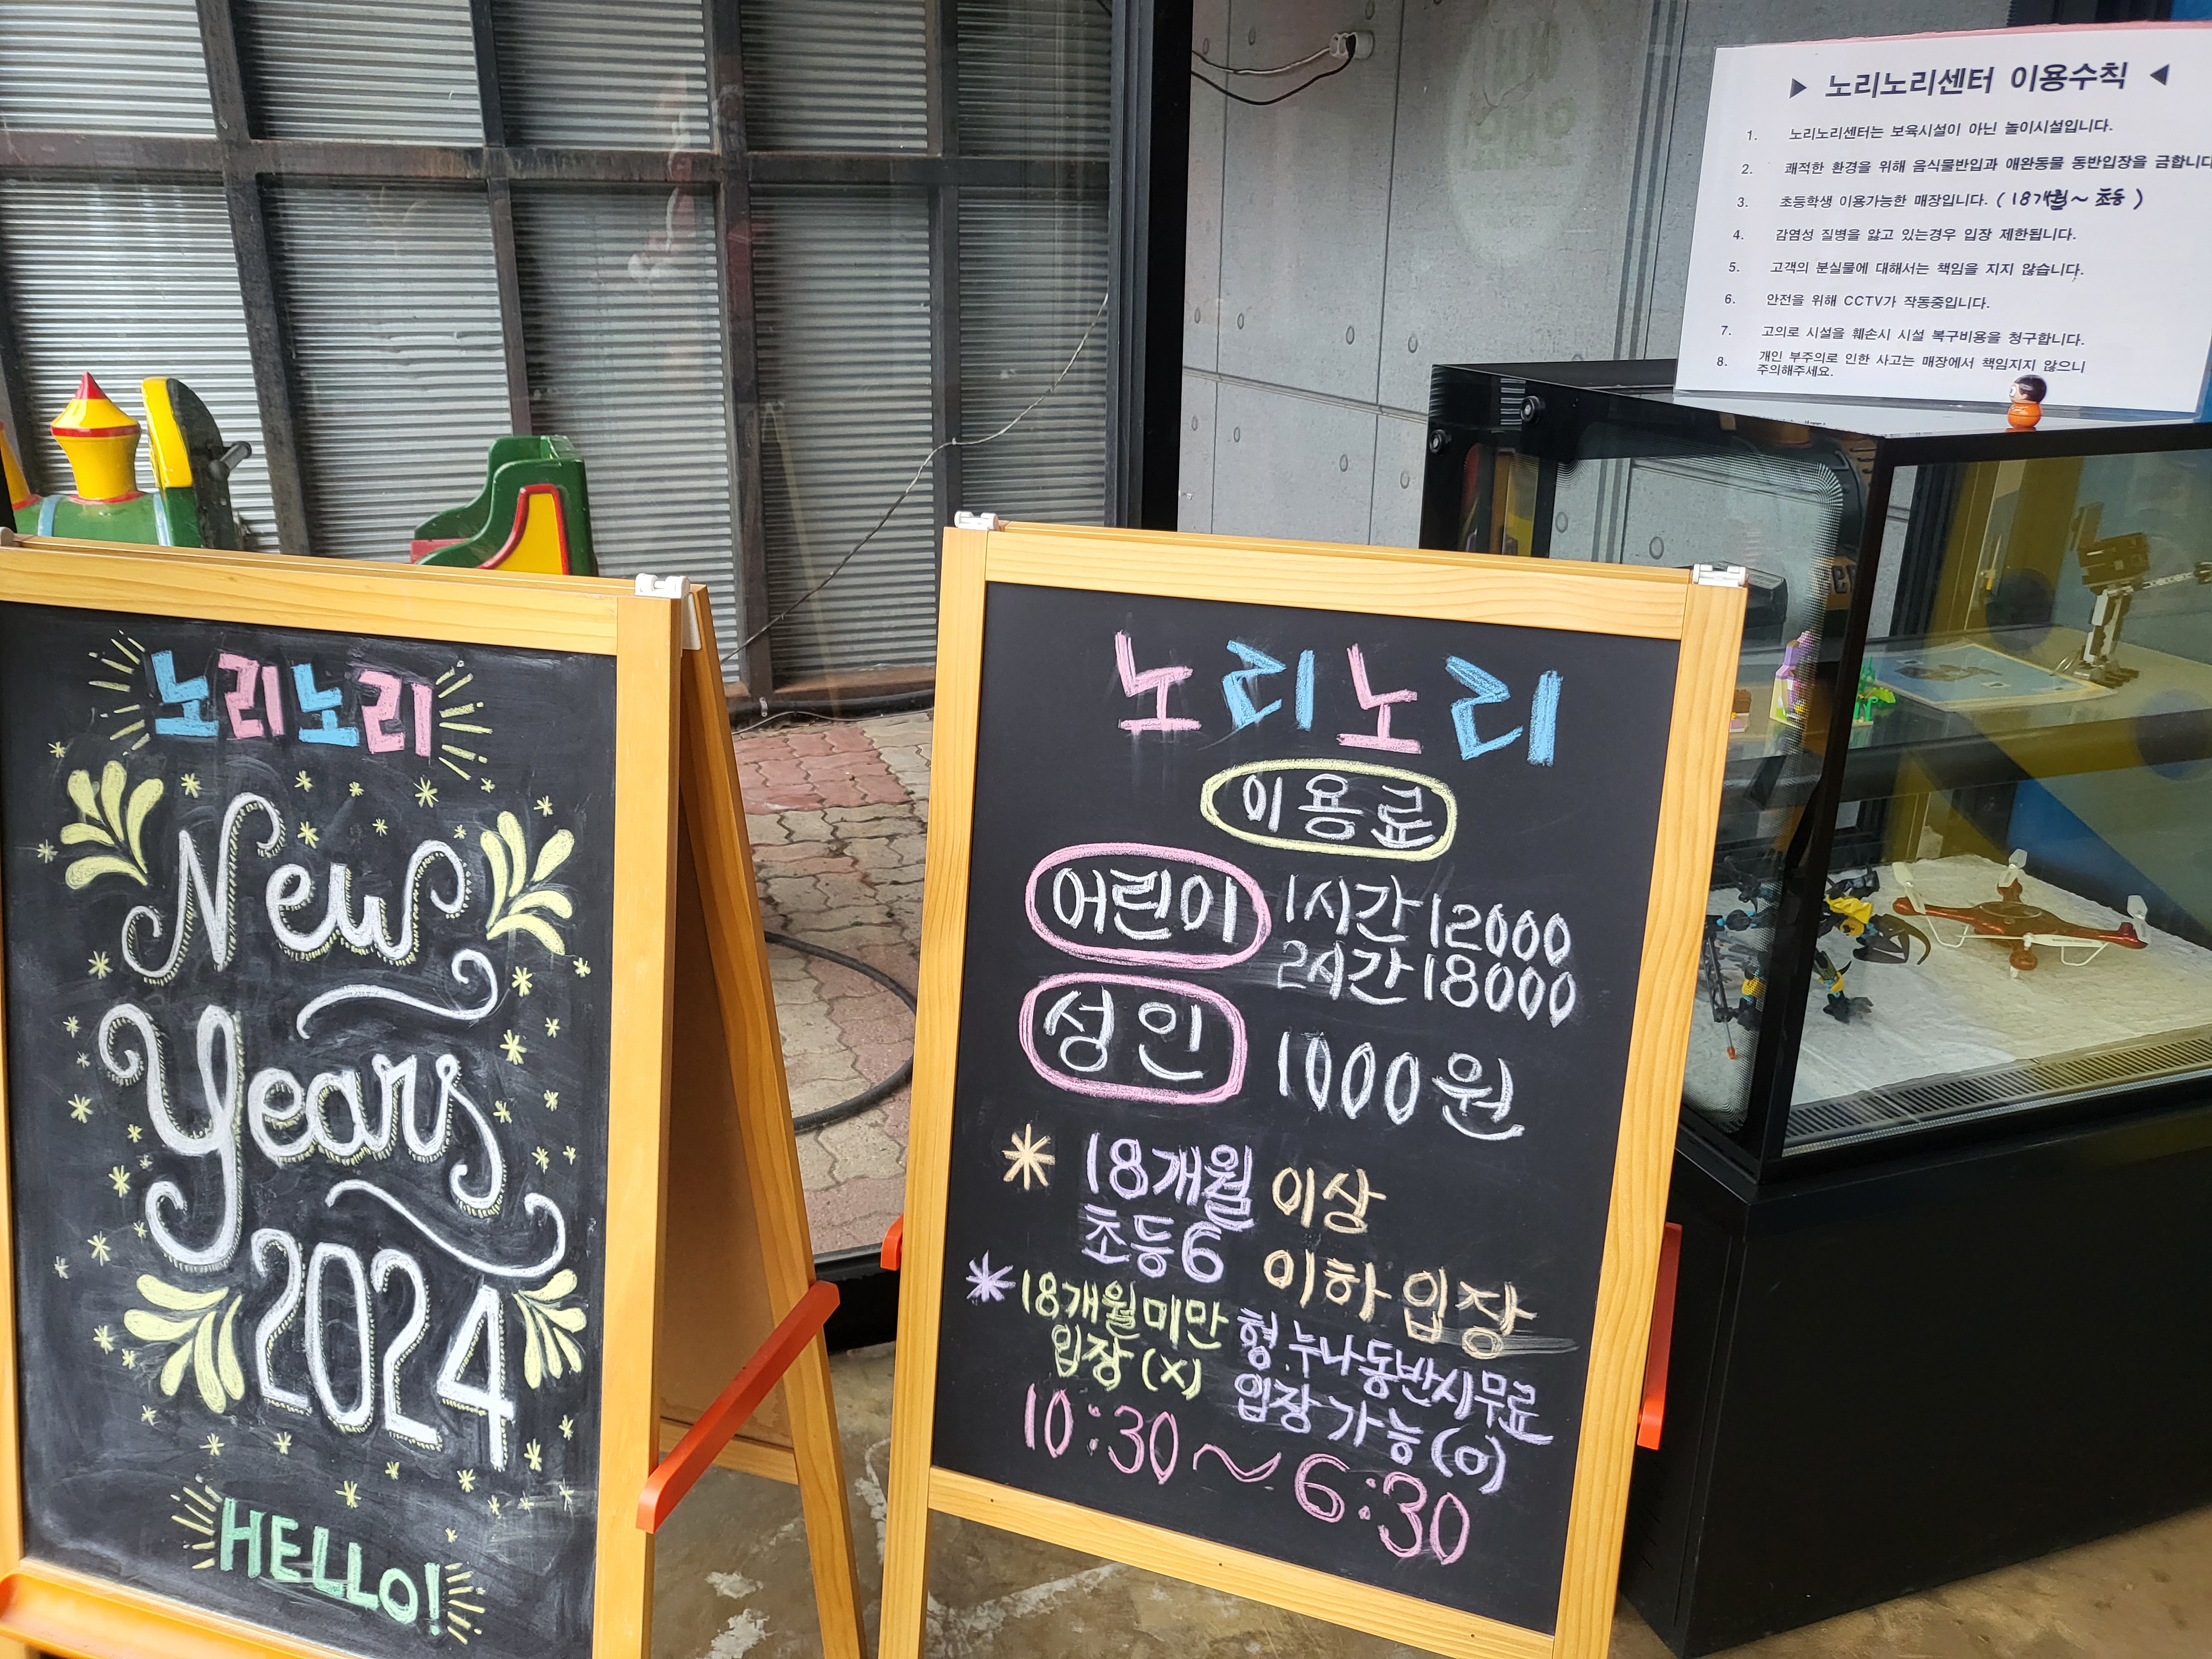 노리노리
New
Years
2024
HELLO!
노리노리
이용료
어린이 1시간 12000
2시간 18000
성인 1000원
* 18개월 이상
초등6 이하 입장
* 18개월미만
입장 (X)
형.누나동반시무료
입장 가능 (O)
10:30~6:30
▶ 노리노리센터 이용수칙 ◀
1. 노리노리센터는 보육시설이 아닌 놀이시설입니다.
2. 쾌적한 환경을 위해 음식물반입과 애완동물 동반입장을 금합니다
3. 초등학생 이용가능한 매장입니다. (18개월~초등)
4. 감염성 질병을 앓고 있는경우 입장 제한됩니다.
5. 고객의 분실물에 대해서는 책임을 지지 않습니다.
6. 안전을 위해 CCTV가 작동중입니다.
7. 고의로 시설을 훼손시 시설 복구비용을 청구합니다.
8. 개인 부주의로 인한 사고는 매장에서 책임지지 않으니
주의해주세요.